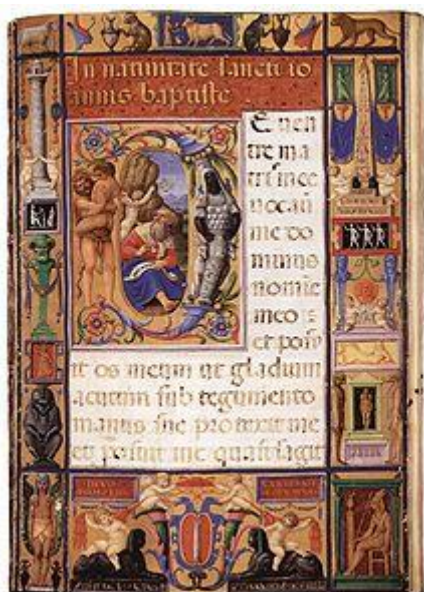 In nativitate sancti io
annis baptiste
E ven
tre ma
tris mee
vocavi
me do
minus
nomine
meo :
et posu
it os meum ut gladium
acutum sub tegumento
manus sue protexit me
et posuit me quasi sagit